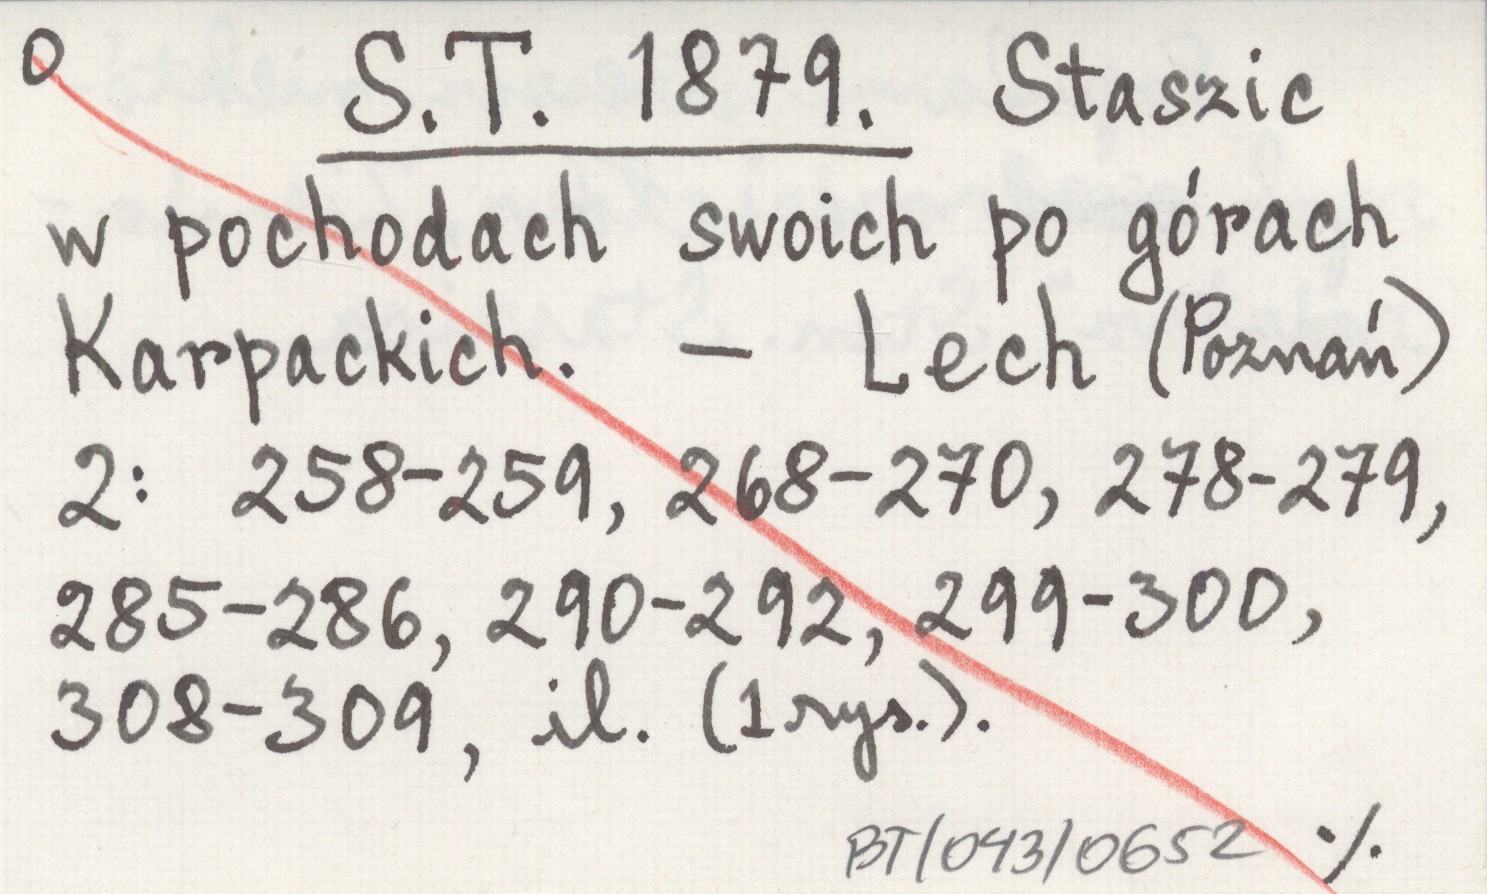 O S.T. 1879. Staszic
w pochodach swoich po górach
Karpackich. – Lech (Poznań)
2: 258-259, 268-270, 278-279,
285-286, 290-292, 299-300,
308-309, il. (1 rys.).
BT/043/0652 ./.